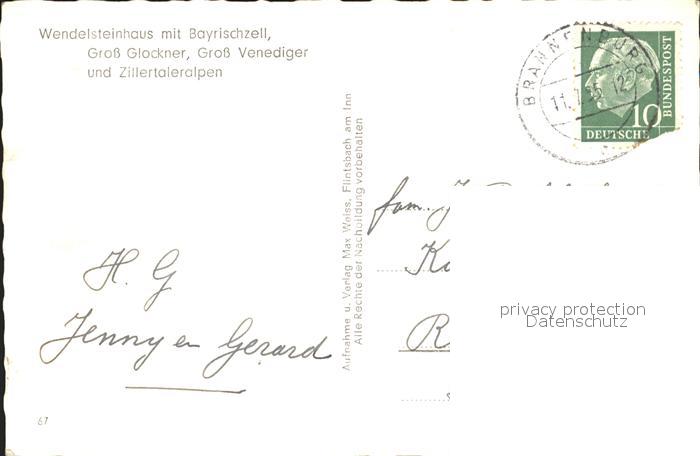 Wendelsteinhaus mit Bayrischzell,
Groß Glockner, Groß Venediger
und Zillertaleralpen
BRANNENBURG
DEUTSCHE
BUNDESPOST
10
Aufnahme u. Verlag Max Weiss, Flintsbach am Inn
Alle Rechte der Nachbildung vorbehalten
fam.
H. G
Jenny en Gerard
privacy protection
Datenschutz
67